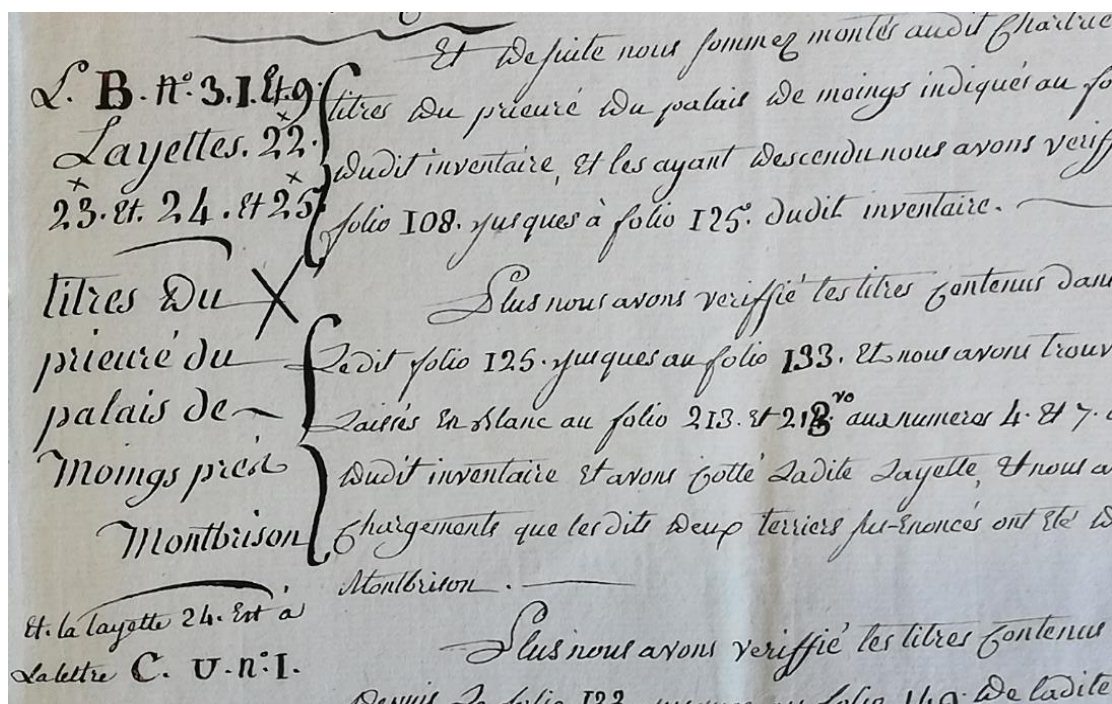 L. B. n°. 3. I. Et. 9.
Layettes. 22.
23. Et. 24. Et 25
titres Du
prieuré du
palais de
Moings prés
Montbrison
Et. la layette 24. Est à
La lettre C. U. n°. I.
Et De suite nous sommez montés audit Chartrie
titres Du prieuré Du palais De moings indiqués au fo
Dudit inventaire, Et les ayant Descendu nous avons veriff
folio 108. jusques à folio 125. dudit inventaire.
Plus nous avons veriffié les titres Contenus dans
Ledit folio 125. jusques au folio 133. Et nous avons trouv
Laissés En Blanc au folio 213. Et vo aux numeros 4. Et 7.
Dudit inventaire Et avons Cotté Ladite Layette, Et nous a
Chargements que lesdits Deux terriers sus-Enoncés ont Eté D
Montbrison.
Plus nous avons veriffié les titres Contenus
Depuis Le folio 133. jusques au folio 149. De ladite